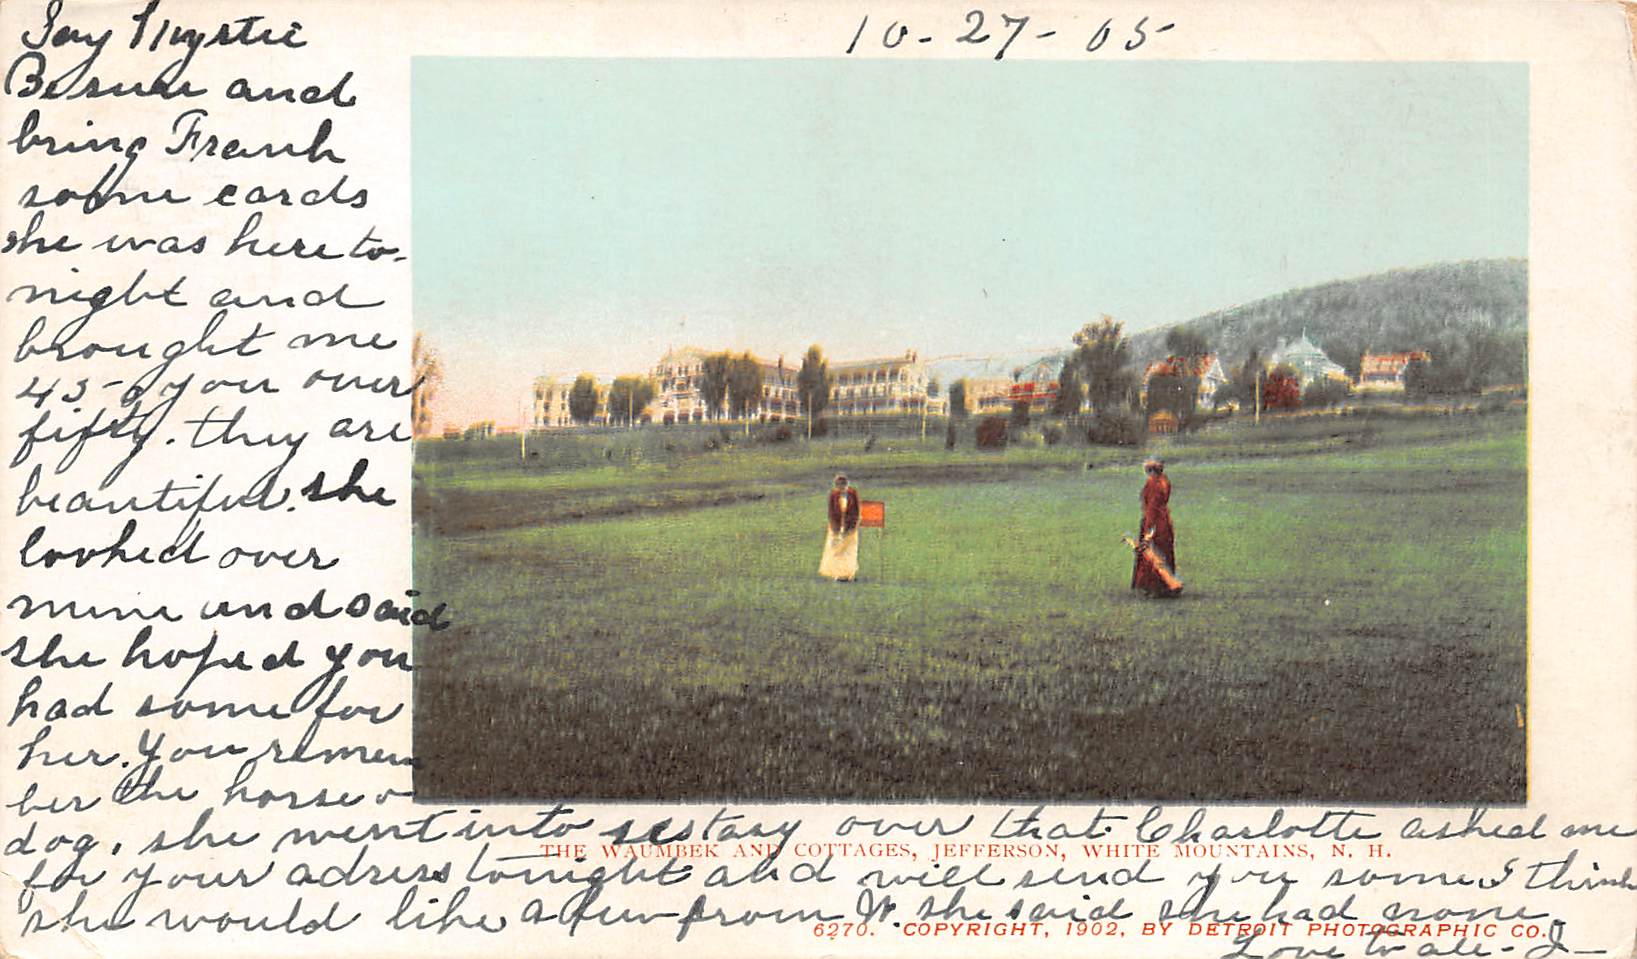 10-27-05
Say Mystic
Be sure and
bring Frank
some cards
she was here to-
night and
brought me
45- you over
fifty. they are
beautiful. she
looked over
mine and said
she hoped you
had some for
her. You remem
ber the horse &
dog. she went into ecstasy over that. Charlotte asked me
for your adress tonight and will send you some. I think
she would like a few from W. she said she had none.
Love to all - J-
THE WAUMBEK AND COTTAGES, JEFFERSON, WHITE MOUNTAINS, N. H.
6270. COPYRIGHT, 1902, BY DETROIT PHOTOGRAPHIC CO.